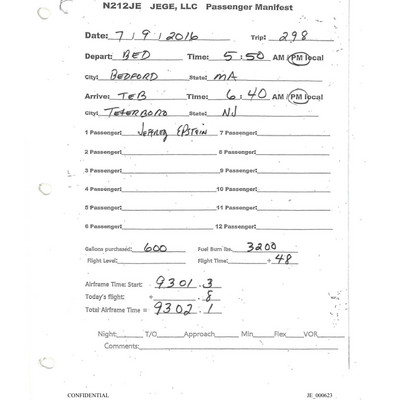 N212JE JEGE, LLC Passenger Manifest
Date: 7/9/2016 Trip: 298
Depart: BED Time: 5:50 AM / PM local
City: BEDFORD State: MA
Arrive: TEB Time: 6:40 AM / PM local
City: TETERBORO State: NJ
1 Passenger: JEFFREY EPSTEIN 7 Passenger:
2 Passenger: 8 Passenger:
3 Passenger: 9 Passenger:
4 Passenger: 10 Passenger:
5 Passenger: 11 Passenger:
6 Passenger: 12 Passenger:
Gallons purchased: 600 Fuel Burn lbs. 3200
Flight Level: Flight Time: + 48
Airframe Time: Start 9301.3
Today's flight: + .8
Total Airframe Time = 9302.1
Night: T/O Approach Min Flex VOR
Comments:
CONFIDENTIAL JE_000623